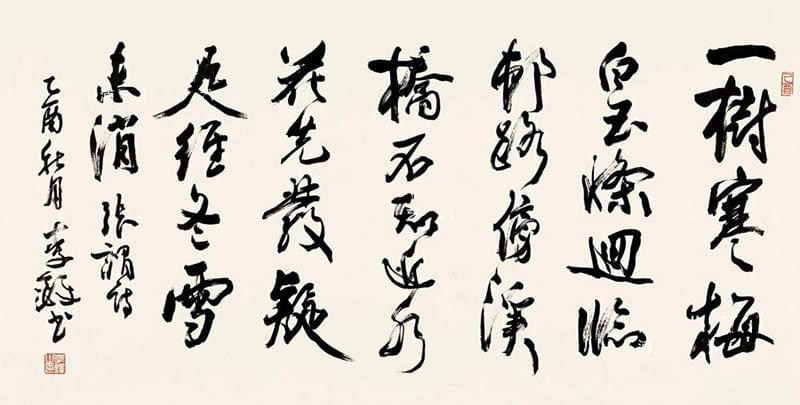 一樹寒梅
白玉條迴臨
邨路傍溪
橋不知近水
花先發疑
是經冬雪
未消 張謂詩
乙酉秋月 李書